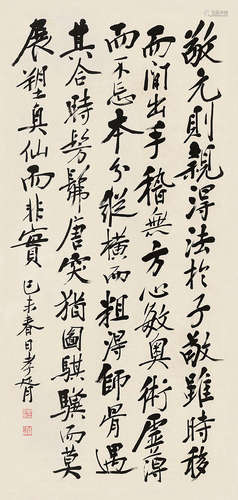 敬元則親得法於子敬雖時移
而間出手稽無方心敏奧術虛薄
而不忘本分縱橫而粗得師骨遇
其合時髣髴唐突猶圖騏驥而莫
展塑真仙而非實 己未春日孝胥